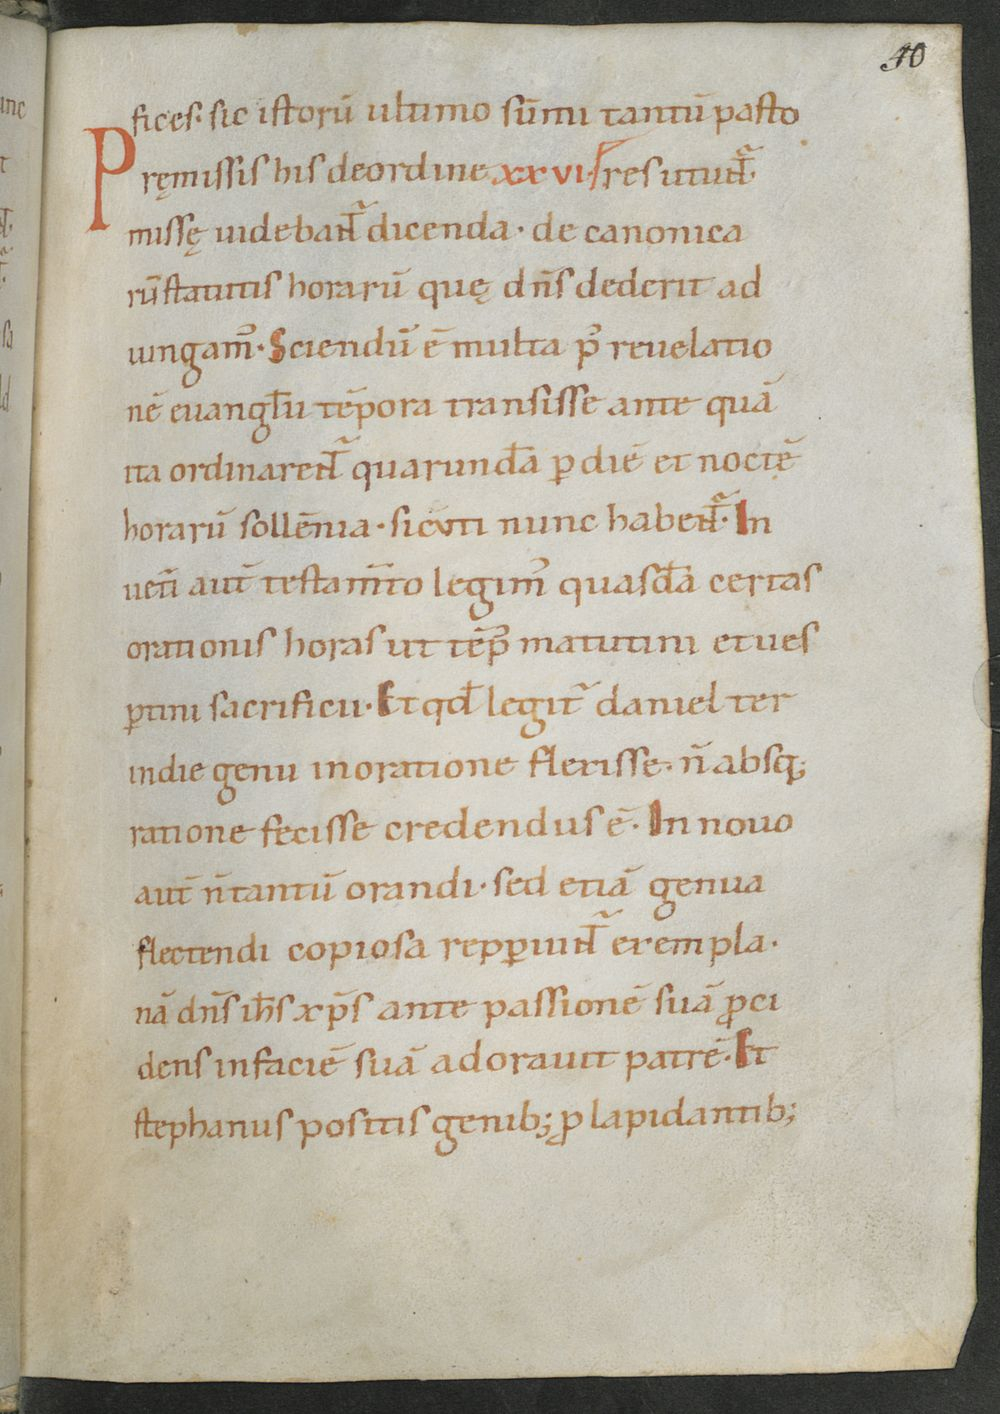 40
fices· sic istorū ultimo sūmi tantū pasto
Pręmissis his de ordine xxvi· res utunt᷑·
missę uidebant᷑ dicenda· de canonica
rū statutis horarū quę dn̄s dederit ad
iungam᷒· Sciendū ē multa p᷒ reuelatio
nē euangl̄ii tēpora transisse ante quā
ita ordinarent᷑ quarundā p̱ diē et noctē
horarū sollēnia· sicuti nunc habent᷑· In
uet̄i aut̄ testam̄to legim᷒ quasdā certas
orationis horas ut tēp᷒ matutini et ues
p̱tini sacrificii· Et qd̄ legit᷑ daniel ter
in die genu in oratione flexisse· n̄ absq;
ratione fecisse credendus ē· In nouo
aut̄ n̄ tantū orandi· sed etiā genua
flectendi copiosa repp̱iunt᷑ exempla·
nā dn̄s ih̄s xp̄s ante passionē suā ꝓci
dens in faciē suā adorauit patrē· Et
stephanus positis genib; ꝓ lapidantib;